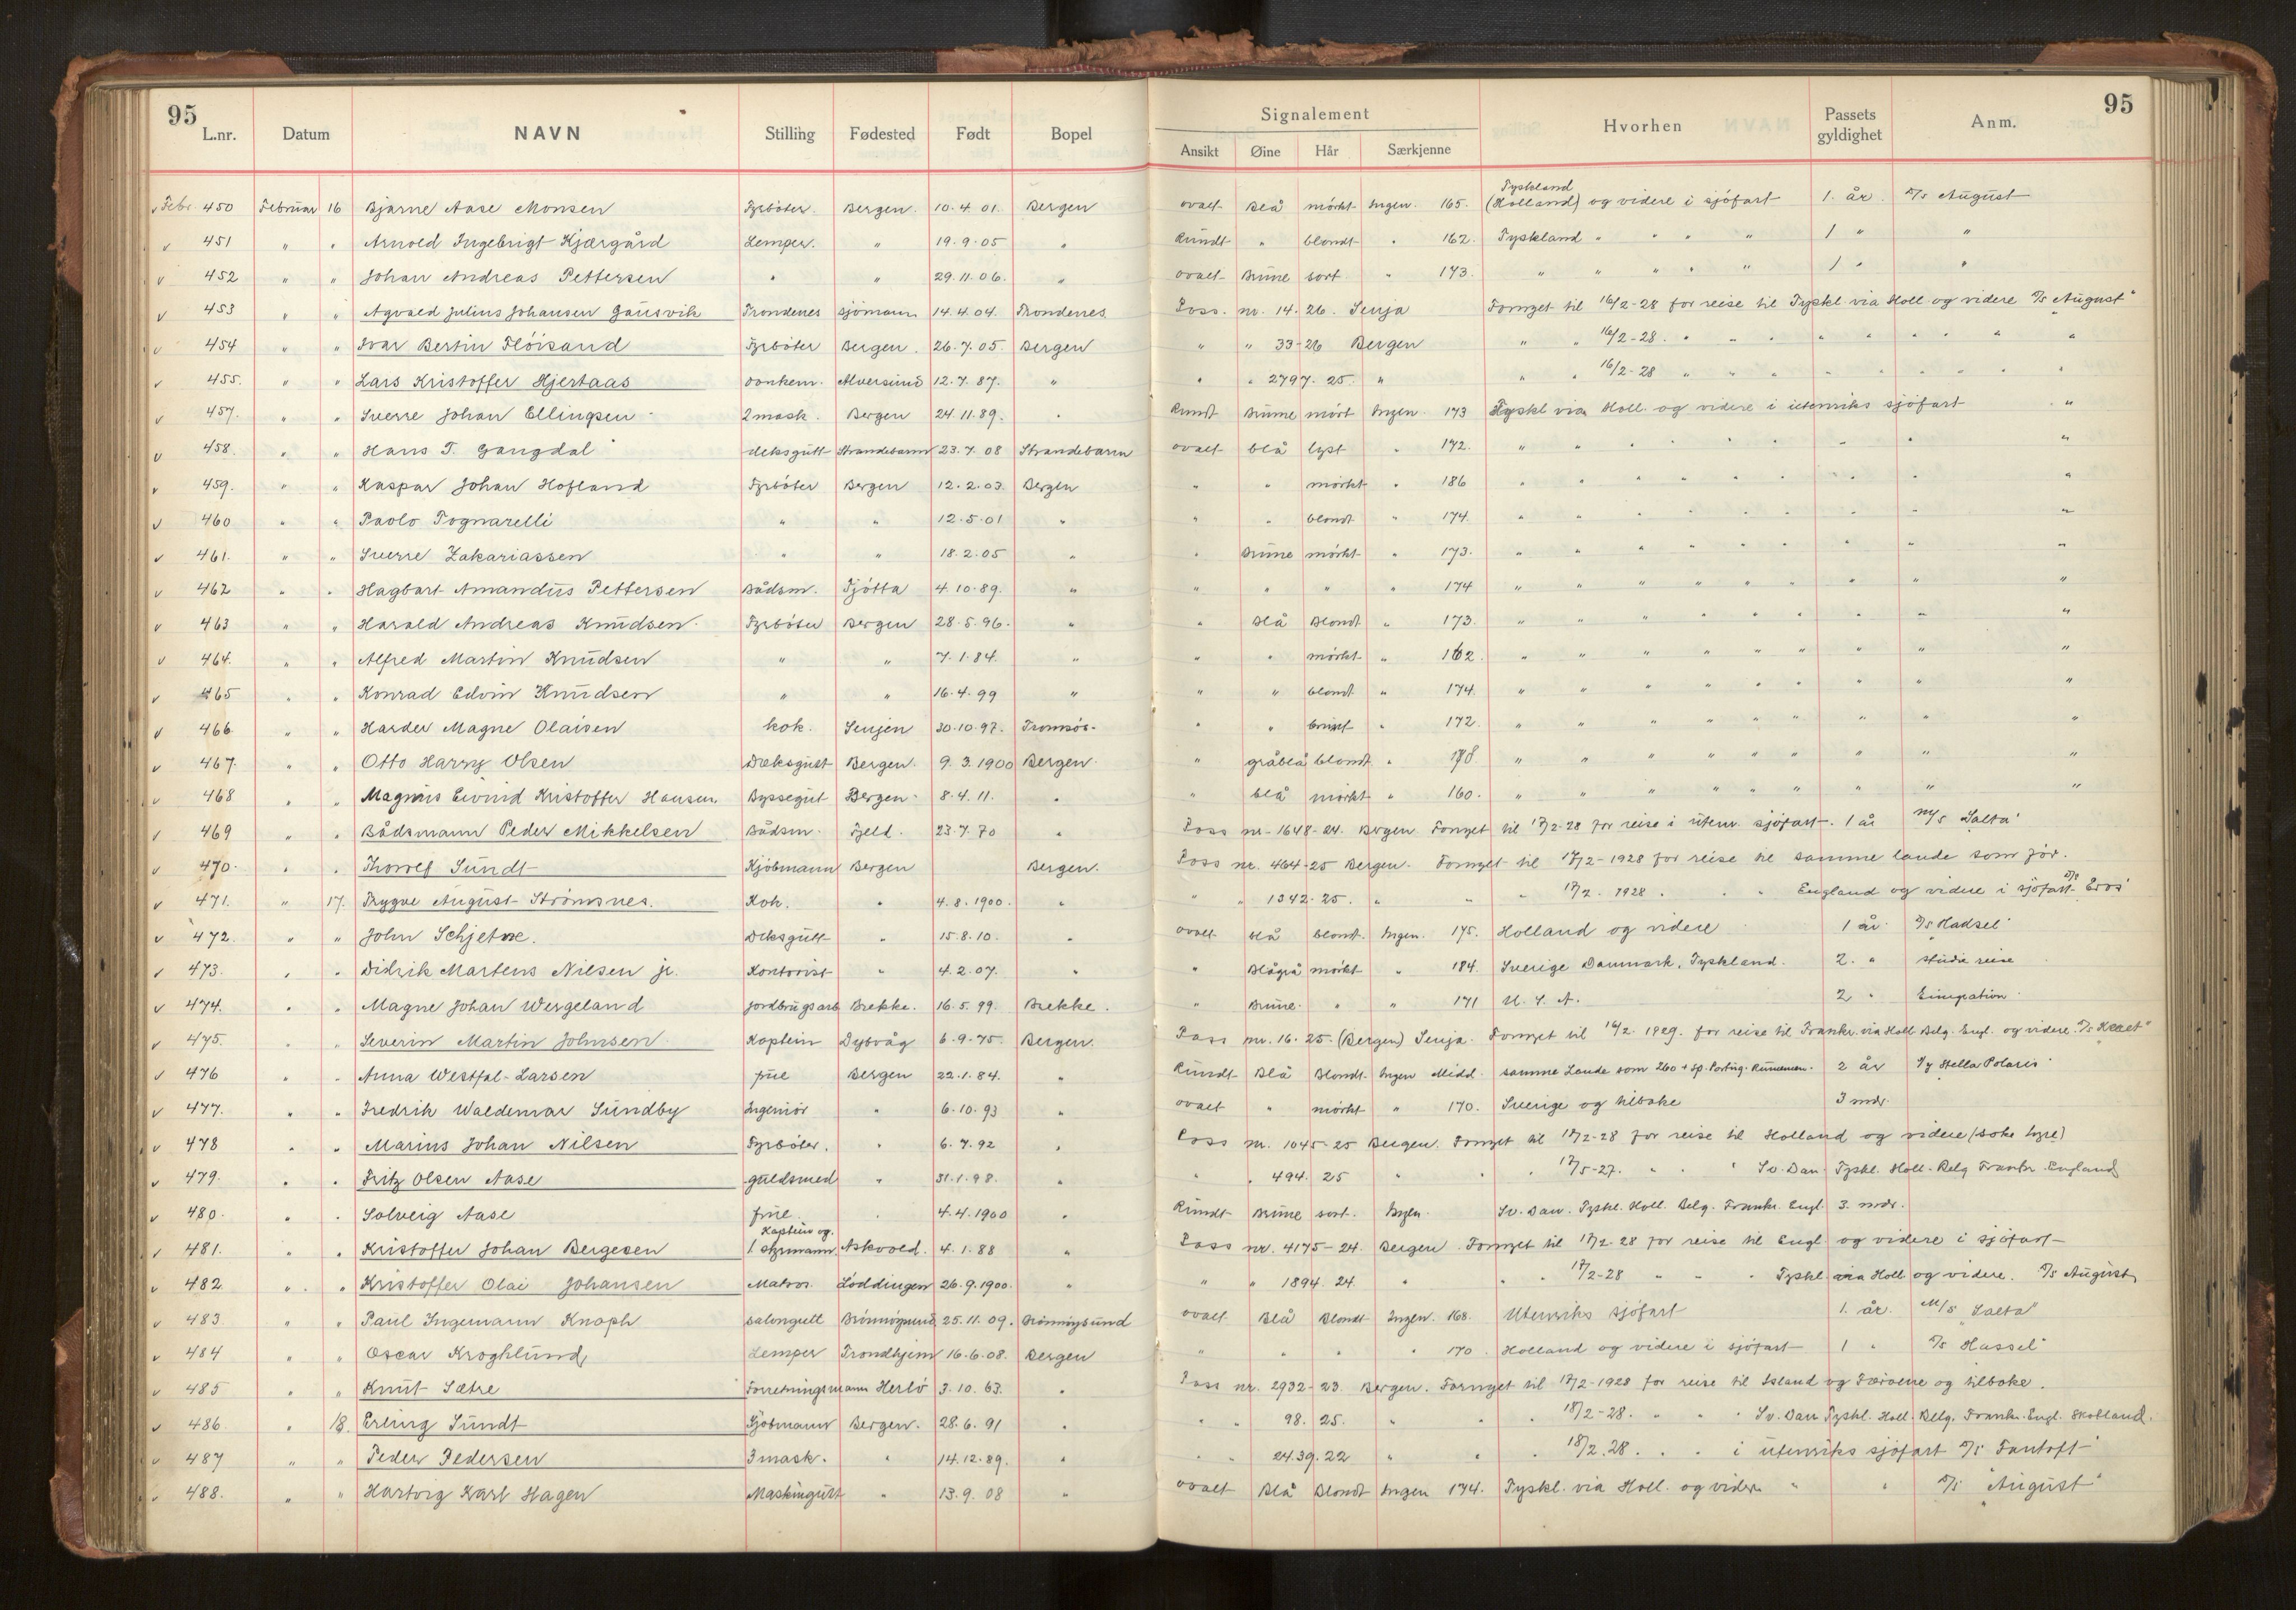 95 95
L.nr. Datum NAVN Stilling Fødested Født Bopel Signalement Ansikt Øine Hår Særkjenne Hvorhen Passets gyldighet Anm.
Tyskland
Febr 450 Februar 16 Bjarne Aase Monsen Fyrbøter. Bergen. 10.4.01. Bergen ovalt Blå mörkt Ingen. 165. (Holland) og videre i sjöfart 1. år. D/s August
451 " " Arnold Ingebrigt Kjærgård Lemper. " 19.9.05 " Rundt " blondt " 162. Tyskland " " " " 1 " "
452 " " Johan Andreas Pettersen " " 29.11.06. " ovalt Brune sort " 173. " " " " " 1 " "
453 " " Agvald Julius Johansen Gausvik Trondenes sjömann 14.4.04. Trondenes Pass. nr. 14.26. Senja Fornyet til 16/2-28 for reise til Tyskl via Holl og videre D/s August"
454 " " Ivar Bertin Flöisand Fyrböter Bergen. 26.7.05. Bergen " " 33-26 Bergen " " 16/2-28. " " " " " " " "
455. " " Lars Kristoffer Hjertaas Alversund 12.7.87. " " " 2797.25. " " " 16/2-28 " " " " " " " "
457. " " Sverre Johan Ellingsen 2 mask. Bergen 24.11.89. " Rundt Brune mört Ingen. 173 Tyskl via Holl. og videre i utenriks sjöfart "
458. " " Hans T. Gangdal deksgutt Strandebarm 23.7.08 Strandebarm ovalt blå lyst " 172. " " " " " " " " "
459. " " Kaspar Johan Hofland Fyrböter Bergen 12.2.03. Bergen " " mörkt " 186 " " " " " " " " "
460 " " Paolo Tognarelli " " 12.5.01 " " " blondt " 174. " " " " " " " " "
461. " " Sverre Zakariassen " " 18.2.05 " " Brune mörkt " 173. " " " " " " " " "
462 " " Hagbart Amandus Pettersen Bådsm. Tjötta 4.10.89. " " " " " 174 " " " " " " " " "
463 " " Harald Andreas Knudsen. Fyrböter Bergen 28.5.96. " " Blå Blondt " 173. " " " " " " " " "
464. " " Alfred Martin Knudsen " " 7.1.84. " " " mörkt " 162. " " " " " " " " "
465 " " Konrad Edvin Knudsen " " 16.4.99 " " " blondt " 174. " " " " " " " " "
466 " " Harder Magne Olaisen kok. Senjen 30.10.97. Tromsö. " " brunt " 172. " " " " " " " " "
467. " " Otto Harry Olsen Dæksgutt Bergen. 9.3.1900 Bergen. " gråblå blondt " 178. " " " " " " " " "
468 " " Magnus Eivind Kristoffer Hansen. Byssegut Bergen. 8.4.11. " " blå mörkt " 160. " " " " " " " " "
469 " " Bådsmann Peder Mikkelsen Bådsm. Fjeld. 23.7.70 " Pass nr. 1648-24. Bergen. Fornyet til 17/2-28 for reise i utenr. sjöfart. 1 år M/s Salta"
470. " " Thorolf Sundt Kjöbmann Bergen Bergen. Pass nr. 464-25 Bergen. Fornyet til 17/2-1928 for reise til samme lande som för.
471. " 17. Trygve August Strömsnes. Kok. " 4.8.1900. " " " 1342.25. " " " 17/2.1928. " " England og videre i sjöfart D/s Eros"
472. " " John Schjetne. Deksgutt " 15.8.10. " ovalt blå blondt. Ingen. 175. Holland og videre 1 år. D/s Hadsel
473. " " Didrik Martens Nilsen jr. Kontorist " 4.2.07. " " Blågrå mörkt " 184. Sverige Danmark, Tyskland. 2. " studie reise
474. " " Magne Johan Wergeland Jordbrugsarb Brekke. 16.5.99. Brekke. " Brune. " " 171 U.S.A. 2 " Emigration.
475. " " Severin Martin Johnsen Kaptein Dybvåg 6.9.75. Bergen. Pass nr. 16.25. (Bergen) Senja. Fornyet til 16/2.1929. for reise til Frankr. via Holl Belg. Engl. og videre.
476 " " Anna Westfal-Larsen frue Bergen 22.1.84. " Rundt Blå Blondt. Ingen Midd. samme Lande som 260 + Sp. Portug. 2 år D/y Stella Polaris
477. " " Fredrik Waldemar Sundby Ingeniör " 6.10.93 " ovalt " mörkt " 170. Sverige og tilbake 3 mdr.
478 " " Marius Johan Nilsen Fyrböter. " 6.7.92 " Pass nr. 1045-25 Bergen. Fornyet til 17/2-28 for reise til Holland og videre (söke hyre)
479. " " Fritz Olsen Aase guldsmed " 31.1.98. " " " 494. 25 " " " 17/5-27. " " " Sv. Dan Tyskl. Holl. Belg Frankr. England
480. " " Solveig Aase frue. " 4.4.1900 " Rundt Brune sort. Ingen. Sv. Dan. Tyskl. Holl. Belg. Frankr. Engl. 3. mdr.
Kaptein og.
481. " " Kristoffer Johan Bergesen 1. styrmann Askvoll. 4.1.88 " Pass nr. 4175-24. Bergen. Fornyet til 17/2.28 for reise til Engl og videre i sjöfart
482 " " Kristoffer Olai Johansen Matros. Löddingen 26.9.1900. " " " 1894.24. " " " 17/2-28 " " " Tyskl via Holl og videre. D/s August
483. " " Paul Ingemann Knoph salongutt Brönnöysund 25.11.09. Brönnöysund ovalt Blå Blondt Ingen. 168. Utenriks sjöfart 1. år. M/s "Salta"
484 " " Oscar Kroghlund Lemper Trondhjem 16.6.08. Bergen " " " " 170. Holland og videre i sjöfart 1 " D/s Hassel"
485 " " Knut Sætre Forretningsmann Herlö 3.10.63. " Pass nr. 2932-23. Bergen. Fornyet til 17/2-1928 for reise til Island og Færoene og tilbake.
486. " 18. Erling Sundt Kjöbmann Bergen. 28.6.91 " " " 98. 25. " " " 18/2-28. " " " Sv. Dan Tyskl. Holl. Belg. Frankr. Engl. Skotland.
487 " " Peder Pedersen 3 mask. " 14.12.89. " " " 24.39.22 " " " 18/2.28. " " i utenriks sjöfart D/s Fantoft"
488. " " Hartvig Karl Hagen Maskingutt " 13.9.08 " ovalt Blå Blondt Ingen 174. Tyskl. via Holl. og videre " " D/s "August"